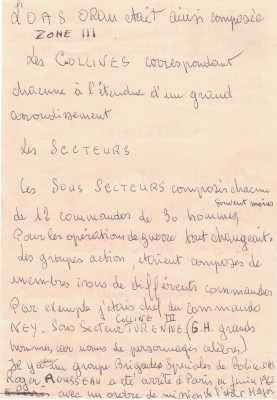 L'OAS ORAN était ainsi composée
ZONE III
Les COLLINES correspondant
chacune à l'étendue d'un grand
arrondissement
Les SECTEURS
Les SOUS SECTEURS composés chacun
souvent moins
de 12 commandos de 30 hommes
Pour les opérations de guerre tout changeait.
des groupes action étaient composés de
membres issus de différents commandos
Par exemple j'étais chef du commando
COLLINE III
NEY. Sous Secteur TURENNE (G.H. grands
hommes, car noms de personnages célèbres)
groupe Brigades Spéciales de Police OAS
Roger ROUSSEAU a été arrêté à Paris en juin 1962
avec un ordre de mission de l'État Major